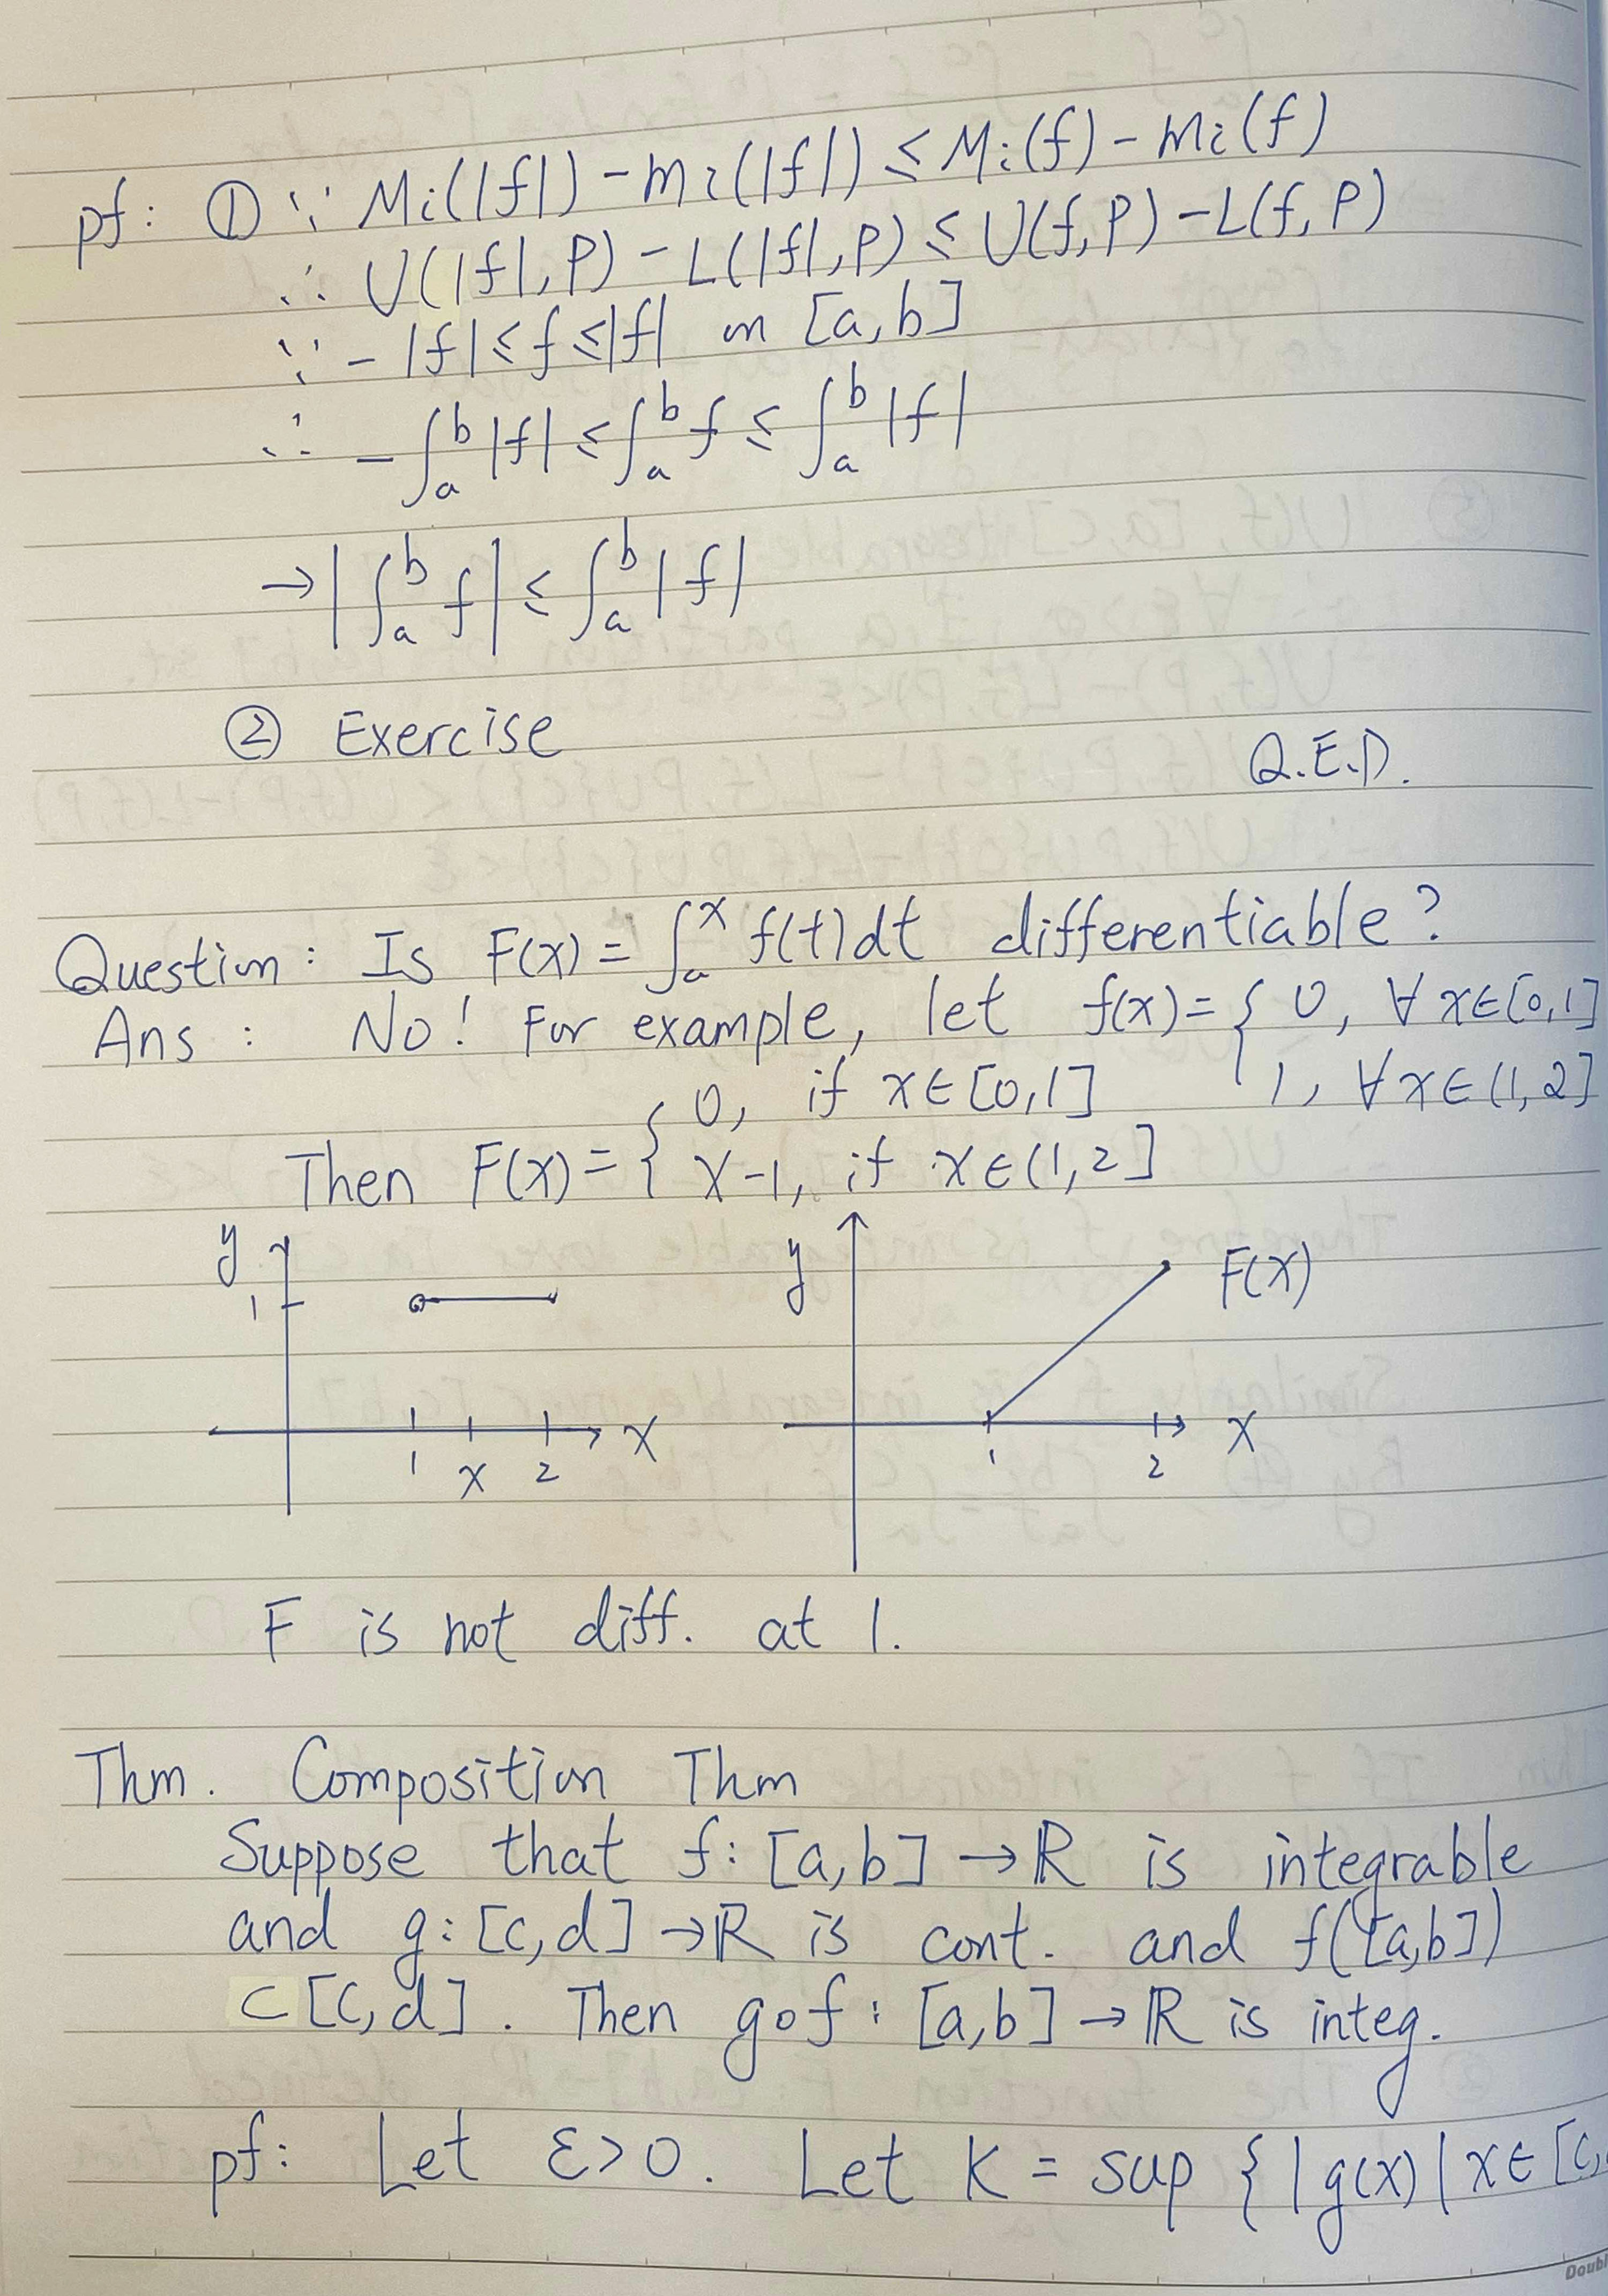 pf: ① ∵ Mi(|f|) - mi(|f|) ≤ Mi(f) - mi(f)
∴ U(|f|, P) - L(|f|, P) ≤ U(f, P) - L(f, P)
∵ -|f| ≤ f ≤ |f| on [a, b]
∴ -∫_a^b |f| ≤ ∫_a^b f ≤ ∫_a^b |f|
→ |∫_a^b f| ≤ ∫_a^b |f|
② Exercise
Q.E.D.
Question: Is F(x) = ∫_a^x f(t)dt differentiable?
Ans : No! For example, let f(x) = { 0, ∀ x∈[0,1]
1, ∀ x∈(1,2]
Then F(x) = { 0, if x∈[0,1]
x-1, if x∈(1,2]
y
1
1 x 2 x
y
F(x)
1 2 x
F is not diff. at 1.
Thm. Composition Thm
Suppose that f: [a,b] → ℝ is integrable
and g: [c,d] → ℝ is cont. and f([a,b])
⊂ [c,d]. Then g∘f : [a,b] → ℝ is integ.
pf: Let ε>0. Let K = sup { |g(x)| x∈[c,
Doubl